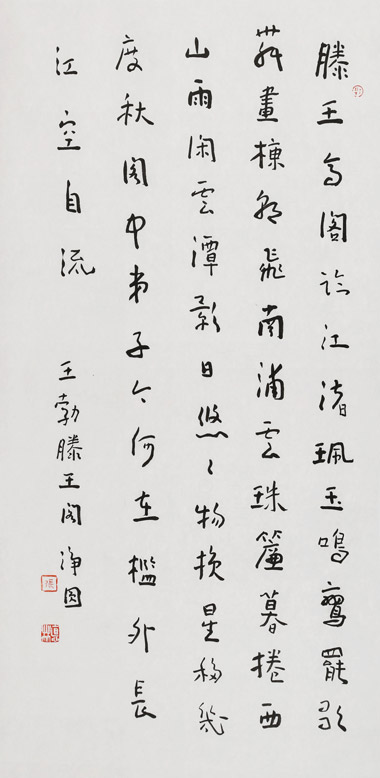 滕王高閣臨江渚珮玉鳴鸞罷歌
舞畫棟朝飛南浦雲珠簾暮捲西
山雨閑雲潭影日悠々物換星移幾
度秋閣中帝子今何在檻外長
江空自流 王勃滕王閣 淨因